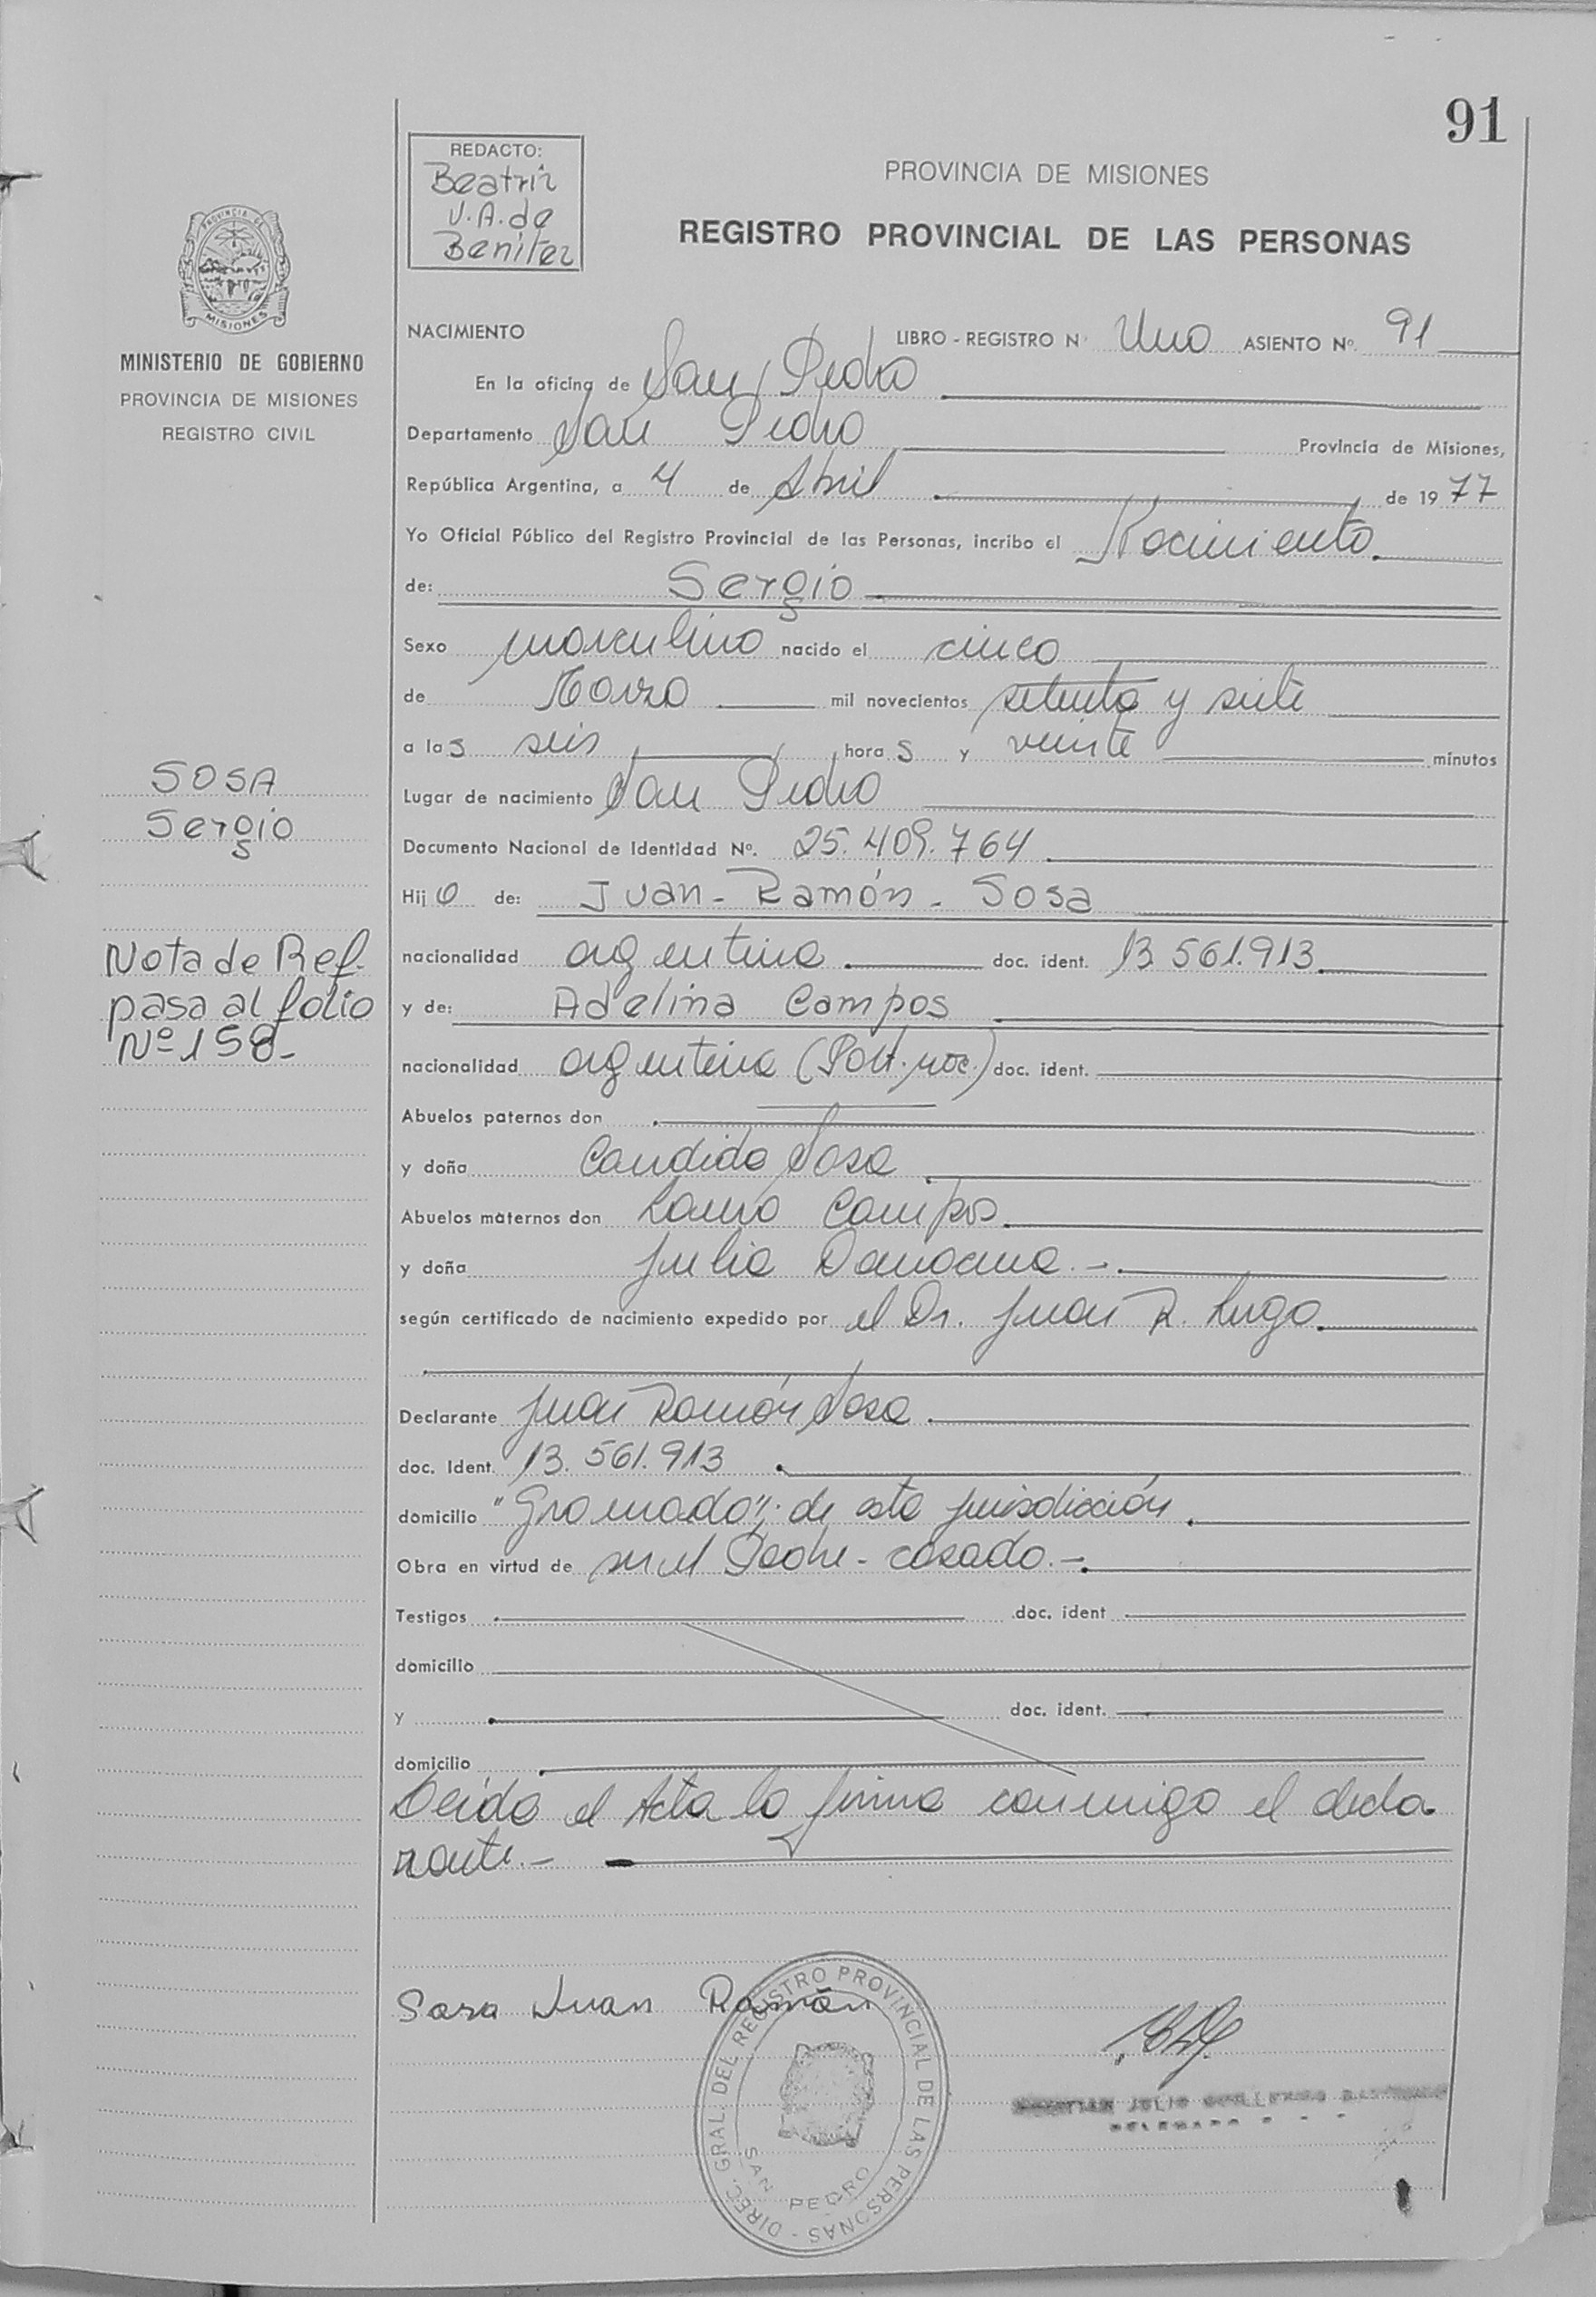 91
REDACTO:
Beatriz
V.A. de
Benitez
PROVINCIA DE MISIONES
REGISTRO PROVINCIAL DE LAS PERSONAS
PROVINCIA DE
MISIONES
MINISTERIO DE GOBIERNO
PROVINCIA DE MISIONES
REGISTRO CIVIL
NACIMIENTO LIBRO - REGISTRO N Uno ASIENTO Nº. 91
En la oficina de San Pedro
Departamento San Pedro Provincia de Misiones,
República Argentina, a 4 de Abril de 1977
Yo Oficial Público del Registro Provincial de las Personas, incribo el Nacimiento.
de: Sergio
Sexo masculino nacido el cinco
de Marzo mil novecientos setenta y siete
a las seis horas y veinte minutos
Lugar de nacimiento San Pedro
Documento Nacional de Identidad Nº. 25.409.764
Hijo de: Juan - Ramón - Sosa
nacionalidad argentina doc. ident. 13 561.913
y de: Adelina Campos
nacionalidad argentina (Part. nac.) doc. ident.
Abuelos paternos don
y doña Candida Sosa
Abuelos maternos don Lauro Campos
y doña Julia
según certificado de nacimiento expedido por el Dr. Juan R. Lugo
Declarante Juan Ramón Sosa
doc. Ident. 13.561.913
domicilio "Gramado", de esta jurisdicción
Obra en virtud de ser el Padre - casado.-
Testigos doc. ident
domicilio
y doc. ident.
domicilio
Leída el Acta la firma conmigo el decla
rante.-
SOSA
Sergio
Nota de Ref.
pasa al folio
Nº 158-
Sosa Juan Ramón
DIREC. GRAL. DEL REGISTRO PROVINCIAL DE LAS PERSONAS -
SAN PEDRO
JULIO GUILLERMO